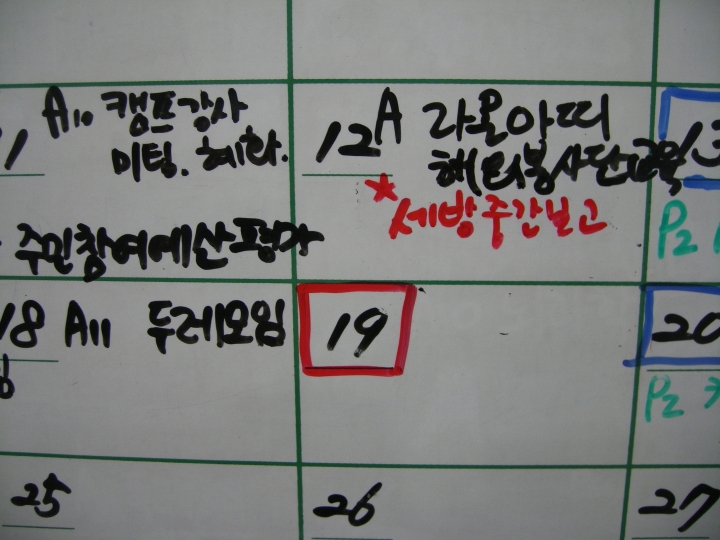 A10 캠프강사
미팅. 혜화.
주민참여예산평가
12 A 라온아띠
해외봉사단교육
*세방주간보고
13
P2
18 A11 두레모임
19
20
P2
25
26
27